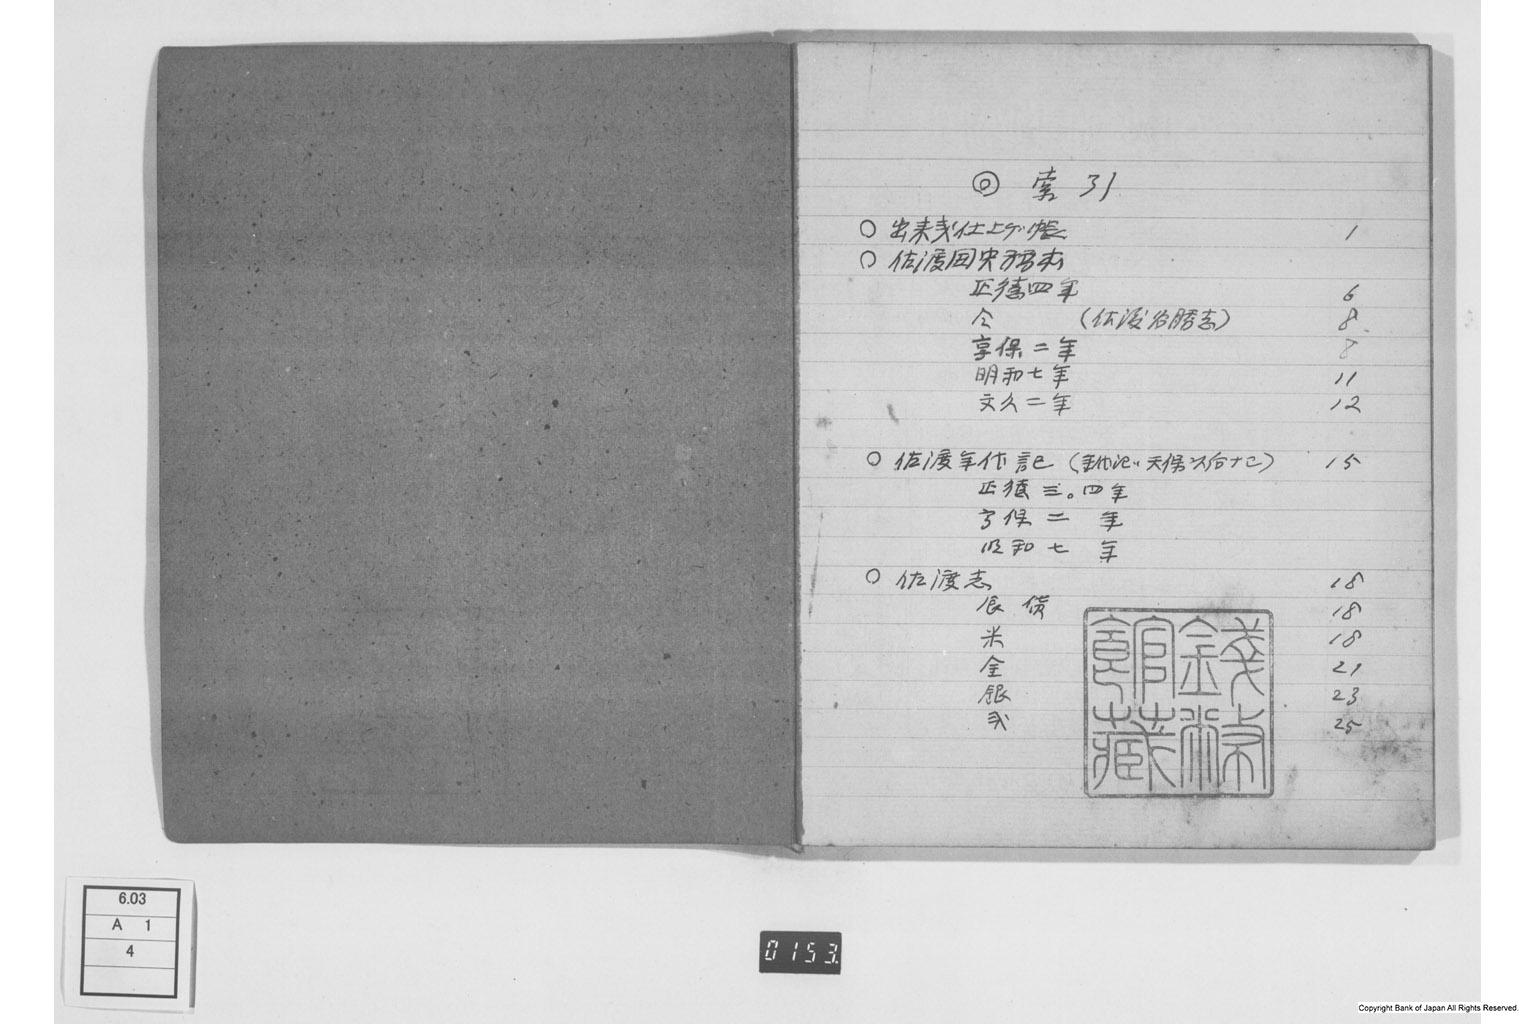 ◎ 索引
○ 出来戋仕上ゲ帳 1
○ 佐渡国史稿本
正徳四年 6
仝 (佐渡名勝志) 8
享保二年 8
明和七年 11
文久二年 12
○ 佐渡年代記 15
正徳三。四年
享保二 年
明和七 年
○ 佐渡志 18
貨 18
米 18
金 21
銀 23
戋 25
錢幣館藏
6.03
A 1
4
0153
Copyright Bank of Japan All Rights Reserved.